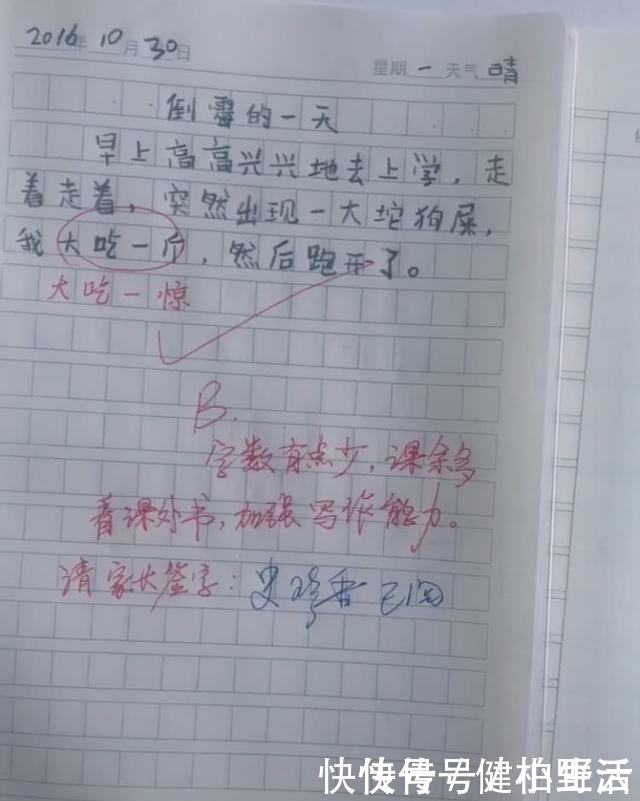 2016年10月30日 星期一 天气晴
倒霉的一天
早上高高兴兴地去上学，走
着走着，突然出现一大坨狗屎，
我大吃一斤，然后跑开了。
大吃一惊
B.
字数有点少，课余多
看课外书，加强写作能力。
请家长签字：史珍香 已阅